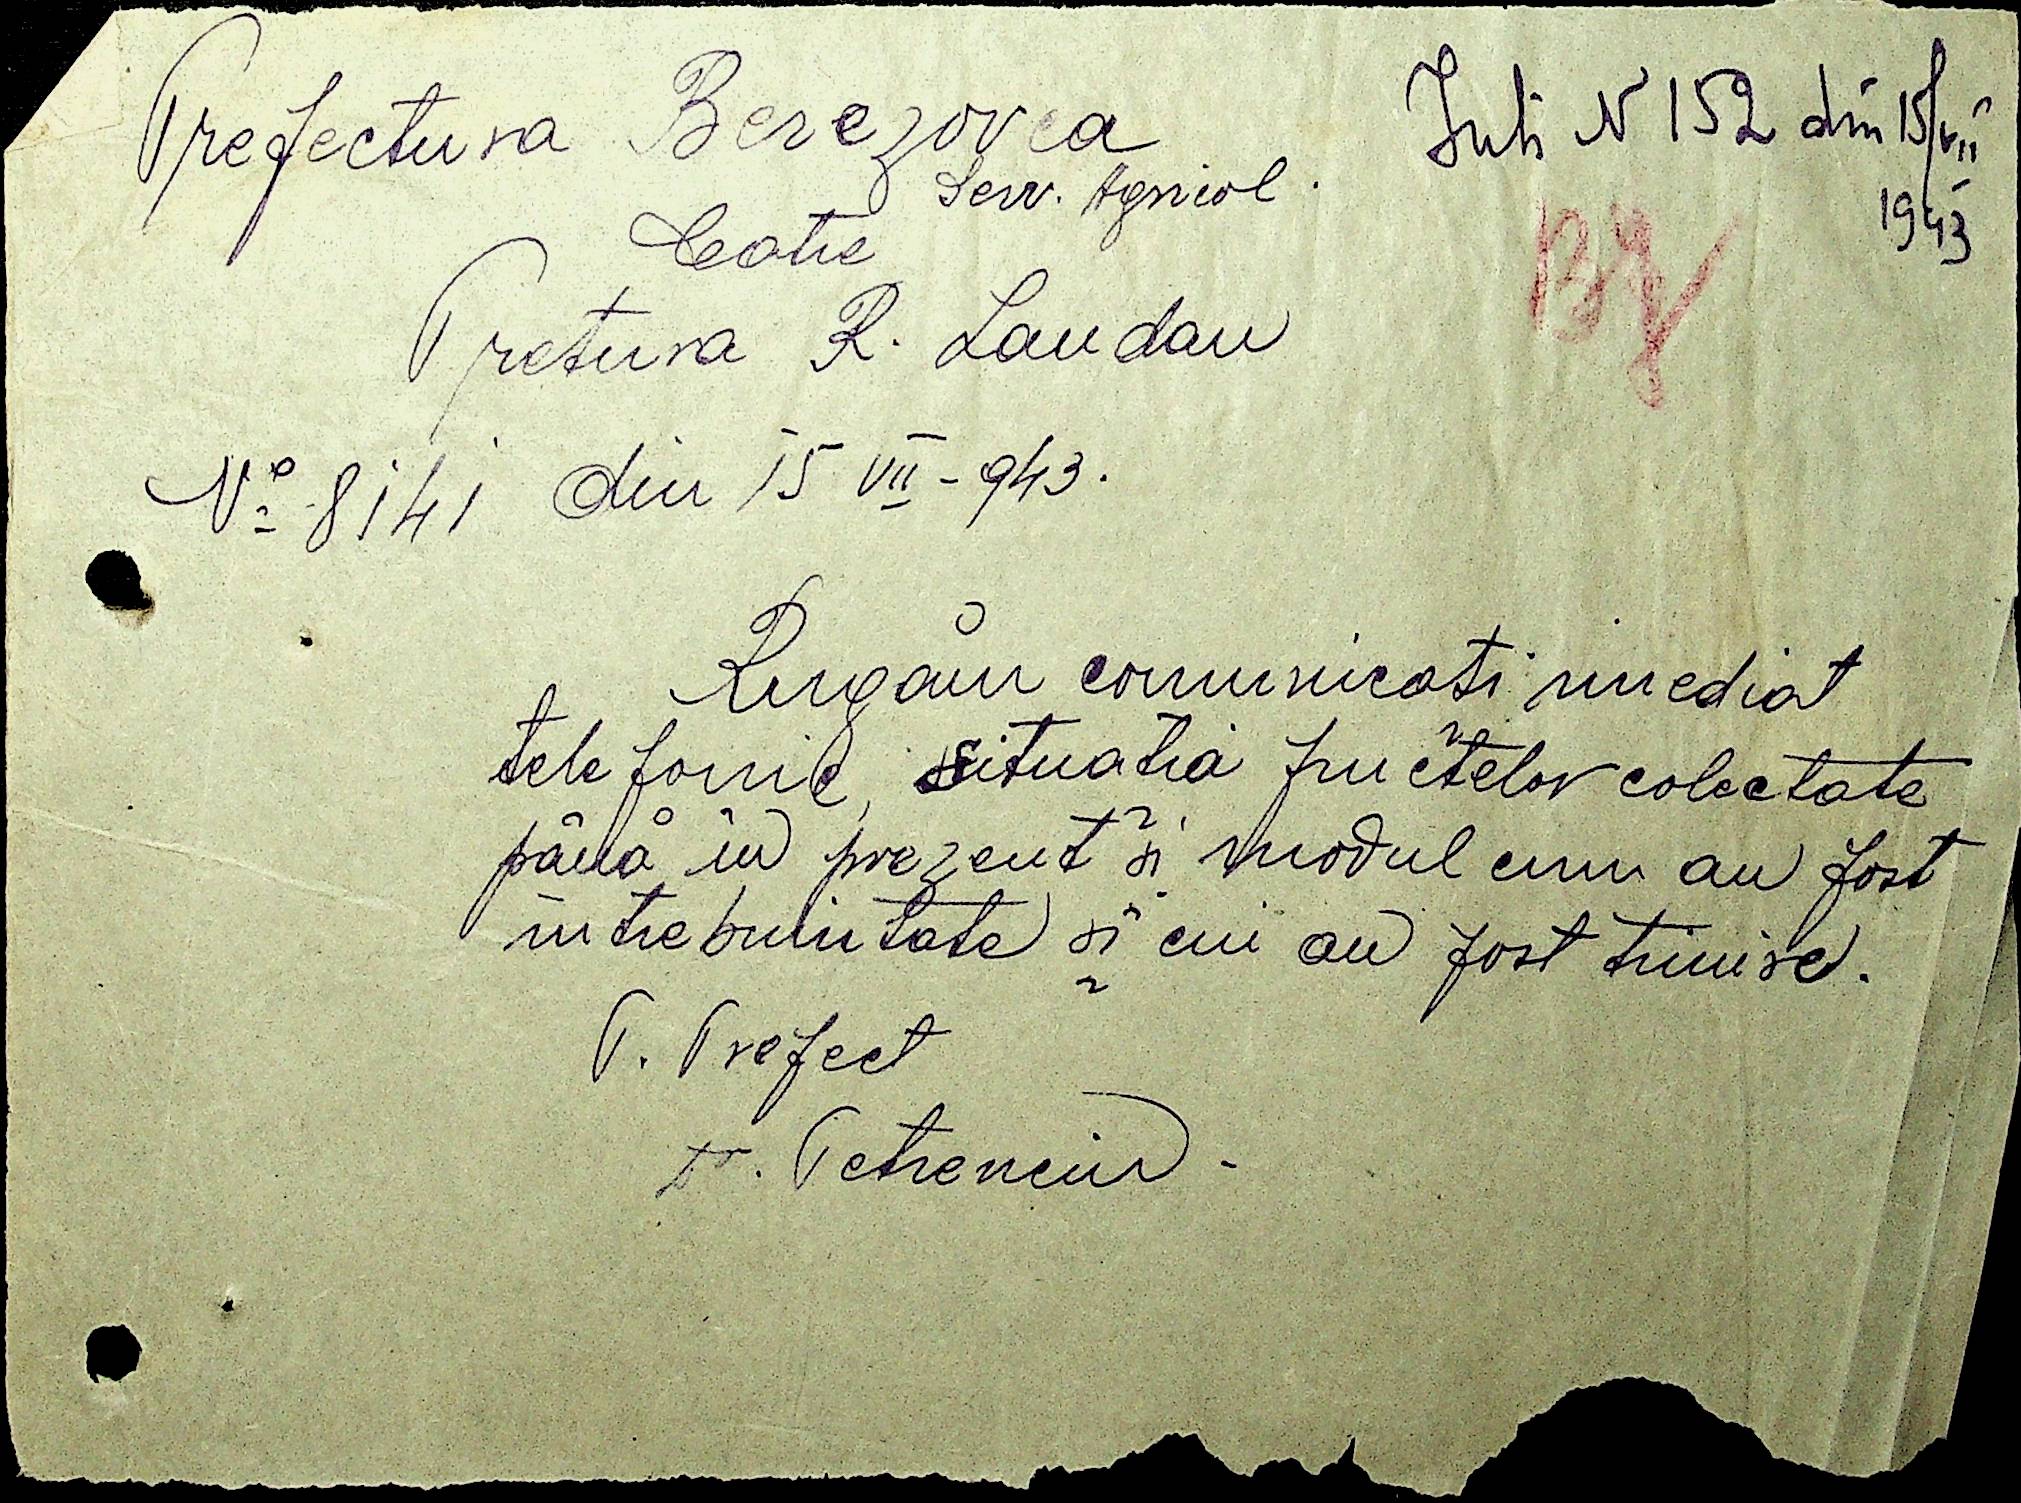 Prefectura Berezovca
Serv. Agricol.
Catre
Pretura R. Landau
No 8141 din 15 VII - 943.
N 152 din 15/VII
1943
Rugăm comunicati imediat
telefonic, situatia fructelor colectate
până în prezent și modul cum au fost
intrebuintate și cui au fost trimise.
P. Prefect
Dr. Petrenciu -